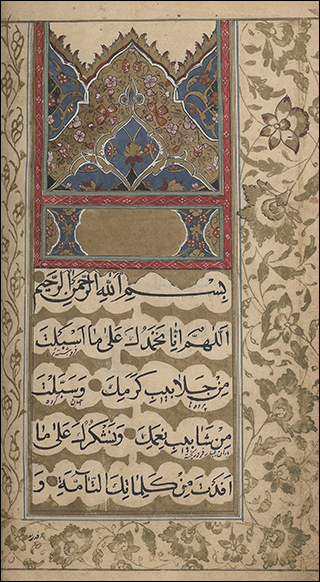 بسم الله الرحمن الرحيم
اللهم انا نحمدك على ما اسبلت
من جلابيب كرمك وسبلت
من شابيب نعمك ونشكرك على ما
افدت من كلماتك التامة و